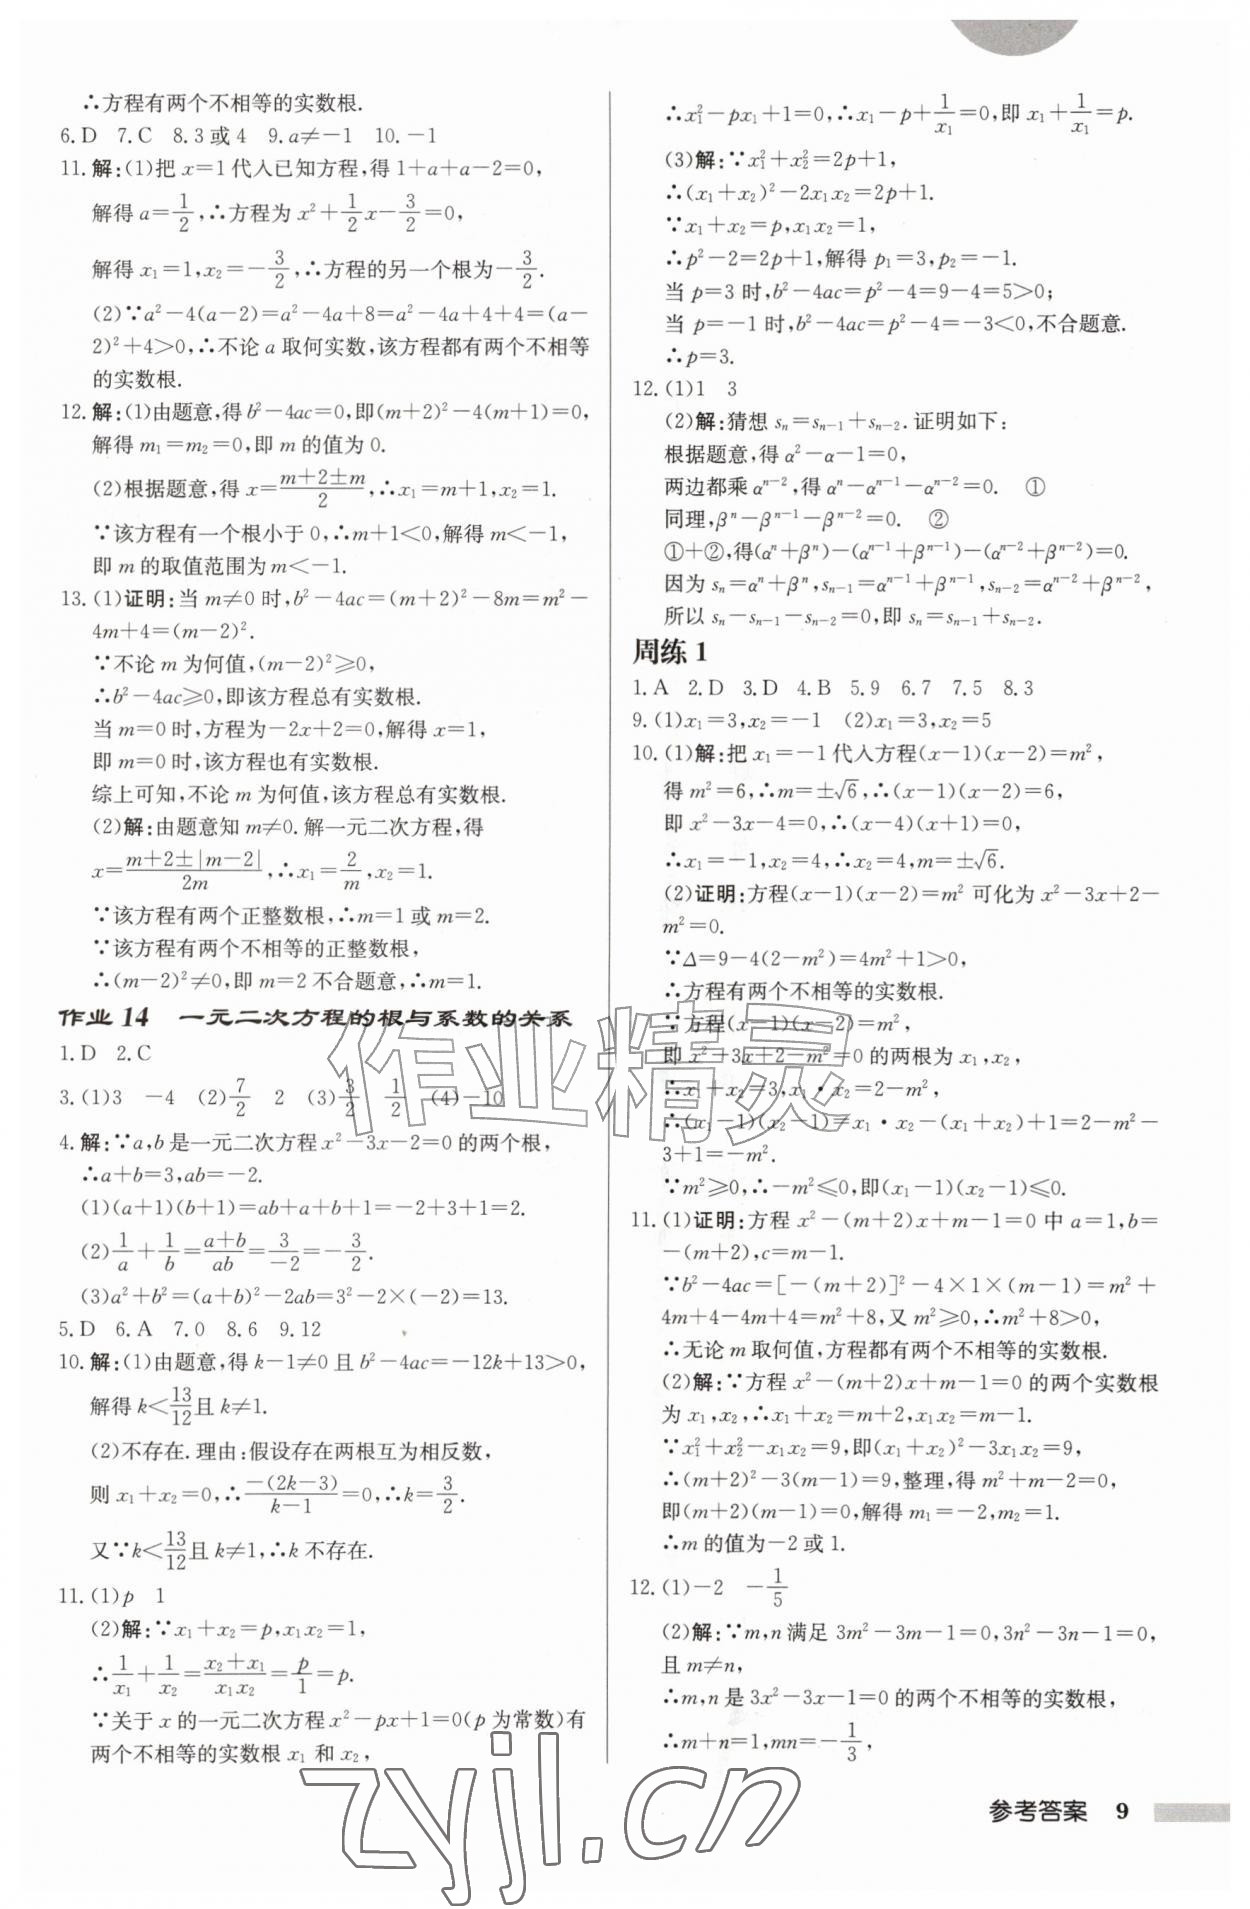 ∴方程有两个不相等的实数根.
6.D 7.C 8.3或4 9.a≠−1 10.−1
11.解:(1)把x=1代入已知方程,得1+a+a−2=0,
解得a=1/2,∴方程为x²+1/2x−3/2=0,
解得x₁=1,x₂=−3/2,∴方程的另一个根为−3/2.
(2)∵a²−4(a−2)=a²−4a+8=a²−4a+4+4=(a−
2)²+4>0,∴不论a取何实数,该方程都有两个不相等
的实数根.
12.解:(1)由题意,得b²−4ac=0,即(m+2)²−4(m+1)=0,
解得m₁=m₂=0,即m的值为0.
(2)根据题意,得x=(m+2±m)/2,∴x₁=m+1,x₂=1.
∵该方程有一个根小于0,∴m+1<0,解得m<−1,
即m的取值范围为m<−1.
13.(1)证明:当m≠0时,b²−4ac=(m+2)²−8m=m²−
4m+4=(m−2)².
∵不论m为何值,(m−2)²≥0,
∴b²−4ac≥0,即该方程总有实数根.
当m=0时,方程为−2x+2=0,解得x=1,
即m=0时,该方程也有实数根.
综上可知,不论m为何值,该方程总有实数根.
(2)解:由题意知m≠0.解一元二次方程,得
x=(m+2±|m−2|)/2m,∴x₁=2/m,x₂=1.
∵该方程有两个正整数根,∴m=1或m=2.
∵该方程有两个不相等的正整数根,
∴(m−2)²≠0,即m=2不合题意,∴m=1.
作业14 一元二次方程的根与系数的关系
1.D 2.C
3.(1)3 −4 (2)7/2 2 (3)3/2 1/2 (4)−10
4.解:∵a,b是一元二次方程x²−3x−2=0的两个根,
∴a+b=3,ab=−2.
(1)(a+1)(b+1)=ab+a+b+1=−2+3+1=2.
(2)1/a+1/b=(a+b)/ab=3/−2=−3/2.
(3)a²+b²=(a+b)²−2ab=3²−2×(−2)=13.
5.D 6.A 7.0 8.6 9.12
10.解:(1)由题意,得k−1≠0且b²−4ac=−12k+13>0,
解得k<13/12且k≠1.
(2)不存在.理由:假设存在两根互为相反数,
则x₁+x₂=0,∴−(2k−3)/(k−1)=0,∴k=3/2.
又∵k<13/12且k≠1,∴k不存在.
11.(1)p 1
(2)解:∵x₁+x₂=p,x₁x₂=1,
∴1/x₁+1/x₂=(x₂+x₁)/x₁x₂=p/1=p.
∵关于x的一元二次方程x²−px+1=0(p为常数)有
两个不相等的实数根x₁和x₂,
∴x₁²−px₁+1=0,∴x₁−p+1/x₁=0,即x₁+1/x₁=p.
(3)解:∵x₁²+x₂²=2p+1,
∴(x₁+x₂)²−2x₁x₂=2p+1.
∵x₁+x₂=p,x₁x₂=1,
∴p²−2=2p+1,解得p₁=3,p₂=−1.
当p=3时,b²−4ac=p²−4=9−4=5>0;
当p=−1时,b²−4ac=p²−4=−3<0,不合题意.
∴p=3.
12.(1)1 3
(2)解:猜想sₙ=sₙ₋₁+sₙ₋₂.证明如下:
根据题意,得α²−α−1=0,
两边都乘αⁿ⁻²,得αⁿ−αⁿ⁻¹−αⁿ⁻²=0. ①
同理,βⁿ−βⁿ⁻¹−βⁿ⁻²=0. ②
①+②,得(αⁿ+βⁿ)−(αⁿ⁻¹+βⁿ⁻¹)−(αⁿ⁻²+βⁿ⁻²)=0.
因为sₙ=αⁿ+βⁿ,sₙ₋₁=αⁿ⁻¹+βⁿ⁻¹,sₙ₋₂=αⁿ⁻²+βⁿ⁻²,
所以sₙ−sₙ₋₁−sₙ₋₂=0,即sₙ=sₙ₋₁+sₙ₋₂.
周练1
1.A 2.D 3.D 4.B 5.9 6.7 7.5 8.3
9.(1)x₁=3,x₂=−1 (2)x₁=3,x₂=5
10.(1)解:把x₁=−1代入方程(x−1)(x−2)=m²,
得m²=6,∴m=±√6,∴(x−1)(x−2)=6,
即x²−3x−4=0,∴(x−4)(x+1)=0,
∴x₁=−1,x₂=4,∴x₂=4,m=±√6.
(2)证明:方程(x−1)(x−2)=m²可化为x²−3x+2−
m²=0.
∵Δ=9−4(2−m²)=4m²+1>0,
∴方程有两个不相等的实数根.
∵方程(x−1)(x−2)=m²,
即x²−3x+2−m²=0的两根为x₁,x₂,
∴x₁+x₂=3,x₁·x₂=2−m²,
∴(x₁−1)(x₂−1)=x₁·x₂−(x₁+x₂)+1=2−m²−
3+1=−m².
∵m²≥0,∴−m²≤0,即(x₁−1)(x₂−1)≤0.
11.(1)证明:方程x²−(m+2)x+m−1=0中a=1,b=
−(m+2),c=m−1.
∵b²−4ac=[−(m+2)]²−4×1×(m−1)=m²+
4m+4−4m+4=m²+8,又m²≥0,∴m²+8>0,
∴无论m取何值,方程都有两个不相等的实数根.
(2)解:∵方程x²−(m+2)x+m−1=0的两个实数根
为x₁,x₂,∴x₁+x₂=m+2,x₁x₂=m−1.
∵x₁²+x₂²−x₁x₂=9,即(x₁+x₂)²−3x₁x₂=9,
∴(m+2)²−3(m−1)=9,整理,得m²+m−2=0,
即(m+2)(m−1)=0,解得m₁=−2,m₂=1.
∴m的值为−2或1.
12.(1)−2 −1/5
(2)解:∵m,n满足3m²−3m−1=0,3n²−3n−1=0,
且m≠n,
∴m,n是3x²−3x−1=0的两个不相等的实数根,
∴m+n=1,mn=−1/3,
参考答案 9
作业精灵
zyjl.cn